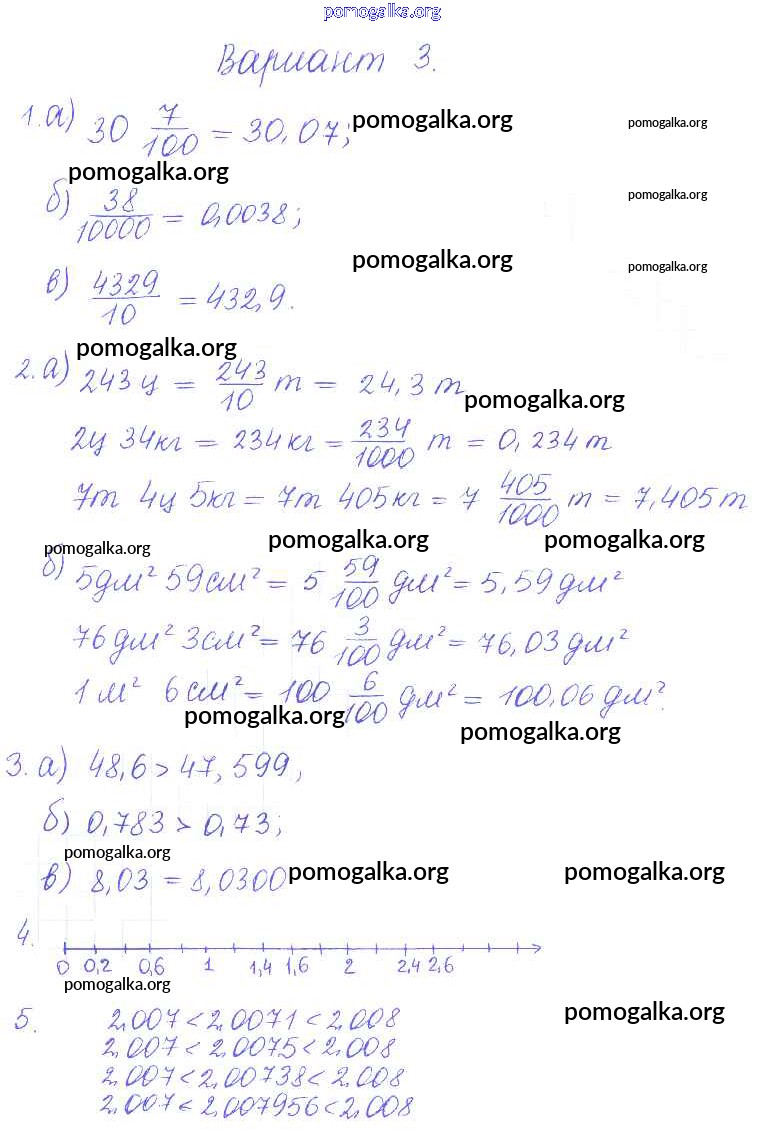 pomogalka.org
Вариант 3.
1. а) 30 7/100 = 30,07; pomogalka.org pomogalka.org
pomogalka.org pomogalka.org
б) 38/10000 = 0,0038;
pomogalka.org pomogalka.org
в) 4329/10 = 432,9.
pomogalka.org
2. а) 243 ц = 243/10 т = 24,3 т
pomogalka.org
2ц 34кг = 234кг = 234/1000 т = 0,234 т
7т 4ц 5кг = 7т 405кг = 7 405/1000 т = 7,405 т
pomogalka.org pomogalka.org pomogalka.org
б) 5дм² 59см² = 5 59/100 дм² = 5,59 дм²
76 дм² 3см² = 76 3/100 дм² = 76,03 дм²
1 м² 6 см² = 100 6/100 дм² = 100,06 дм².
pomogalka.org pomogalka.org
3. а) 48,6 > 47,599;
б) 0,783 > 0,73;
pomogalka.org
в) 8,03 = 8,0300 pomogalka.org pomogalka.org
4.
0 0,2 0,6 1 1,4 1,6 2 2,4 2,6
pomogalka.org
5. 2,007 < 2,0071 < 2,008 pomogalka.org
2,007 < 2,0075 < 2,008
2,007 < 2,00738 < 2,008
2,007 < 2,007956 < 2,008